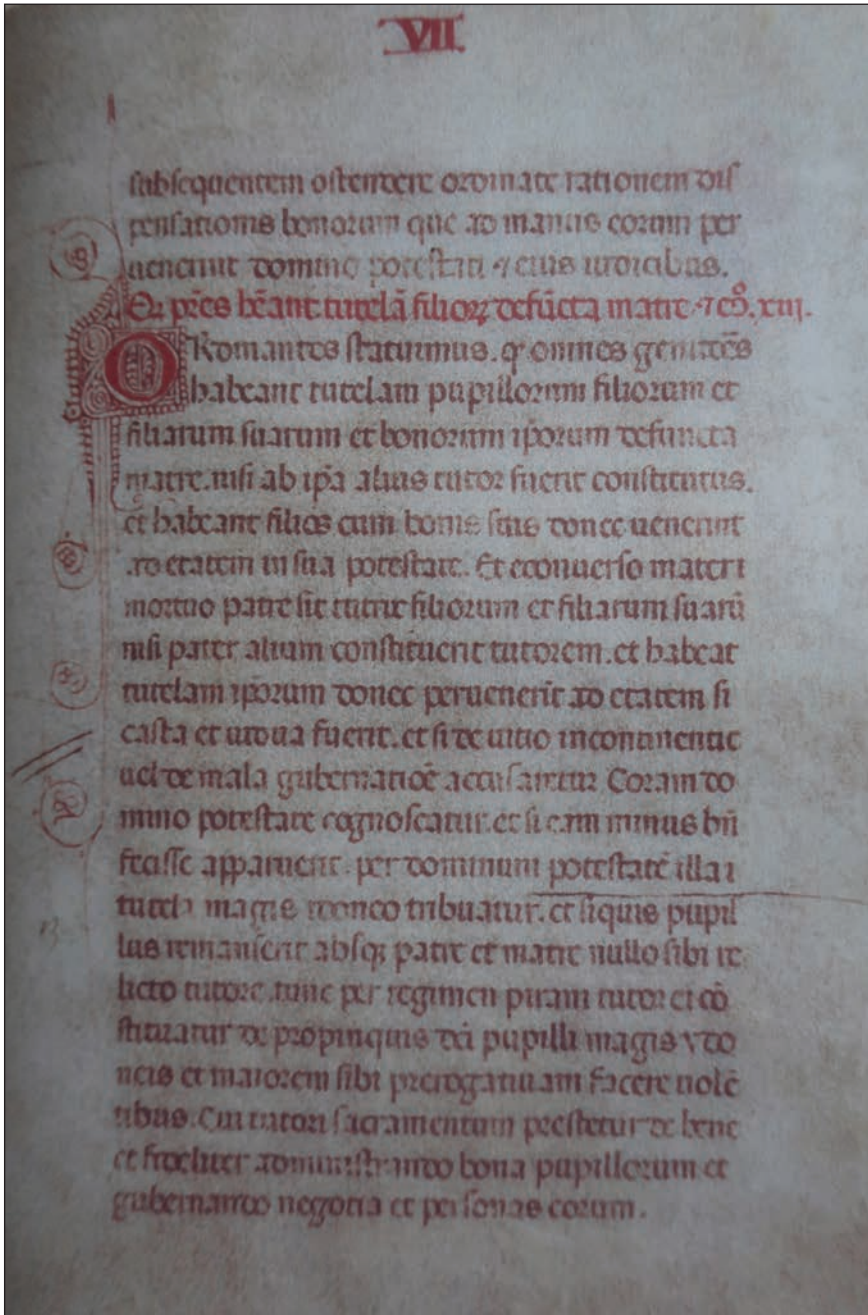 VII.
subsequentem ostendere ordinate rationem dis
pensationis bonorum que ad manus eorum per
uenerint domino potestati ⁊ eius iudicibus.
Qđ pr̄es hēant tutelā filioꝝ defūcta matre ⁊ cō. xiii.
Ordinantes statuimus. qͥ omnes genitōēs
habeant tutelam pupillorum filiorum et
filiarum suarum et bonorum ip̄orum defuncta
matre. nisi ab ip̄a alius tutor fuerit constitutus.
et habeant filios cum bonis suis donec uenerint
ad etatem in sua potestate. Et econuerso mater
mortuo patre sit tutrix filiorum et filiarum suarū
nisi pater alium constituerit tutorem. et habeat
tutelam ip̄orum donec peruenerīt ad etatem si
casta et uidua fuerit. et si de uitio incontinentie
uel de mala gubernatiōe accusaretur Coram do
mino potestate cognoscatur. et si eam minus bn̄
fecisse apparuerit. per dominum potestatē illa
tutela magis idoneo tribuatur. et siquis pupil
lus remanserit absqꝫ patre et matre nullo sibi re
licto tutore. tunc per regimen tutor ei cō
stituatur de propinquis dc̄i pupilli magis ydo
neis et maiorem sibi prerogatiuam facere uolē
tibus. Cui tutori sacramentum prestetur de bene
et fideliter administrando bona pupillorum et
gubernando negotia et personas eorum.